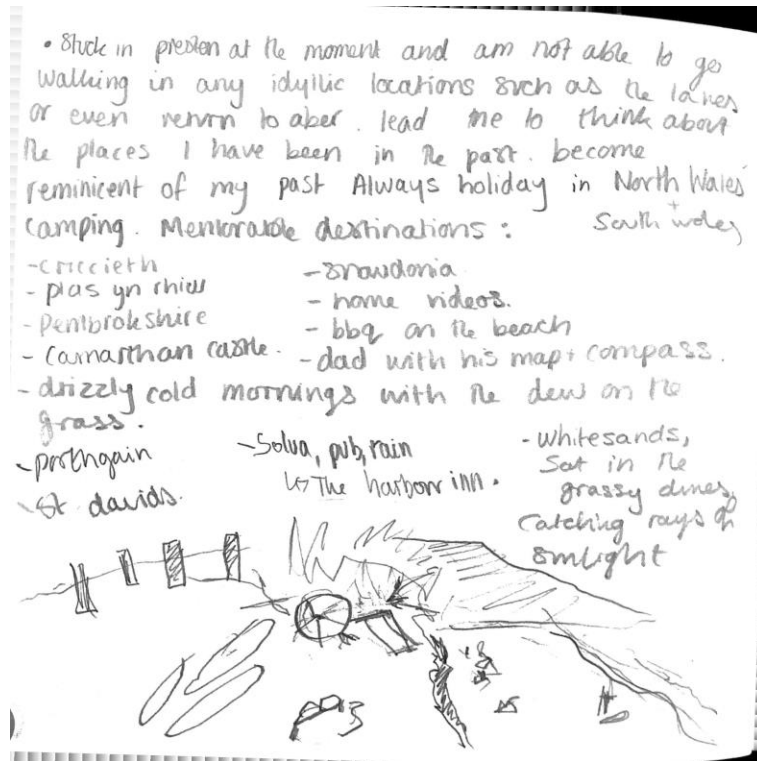 • Stuck in preston at the moment and am not able to go
walking in any idyllic locations such as the lakes
or even return to aber. lead me to think about
the places I have been in the past. become
reminicent of my past Always holiday in North Wales
+
camping. Memorable destinations: South wales
- criccieth
- plas yn rhiw
- Pembrokeshire
- Camarthan castle.
- snowdonia
- home videos.
- bbq on the beach
- dad with his map + compass.
- drizzly cold mornings with the dew on the
grass.
- porthgain
- St davids.
- Solva, pub, rain
↳ The harbour inn.
- whitesands,
Sat in the
grassy dunes,
Catching rays of
sunlight